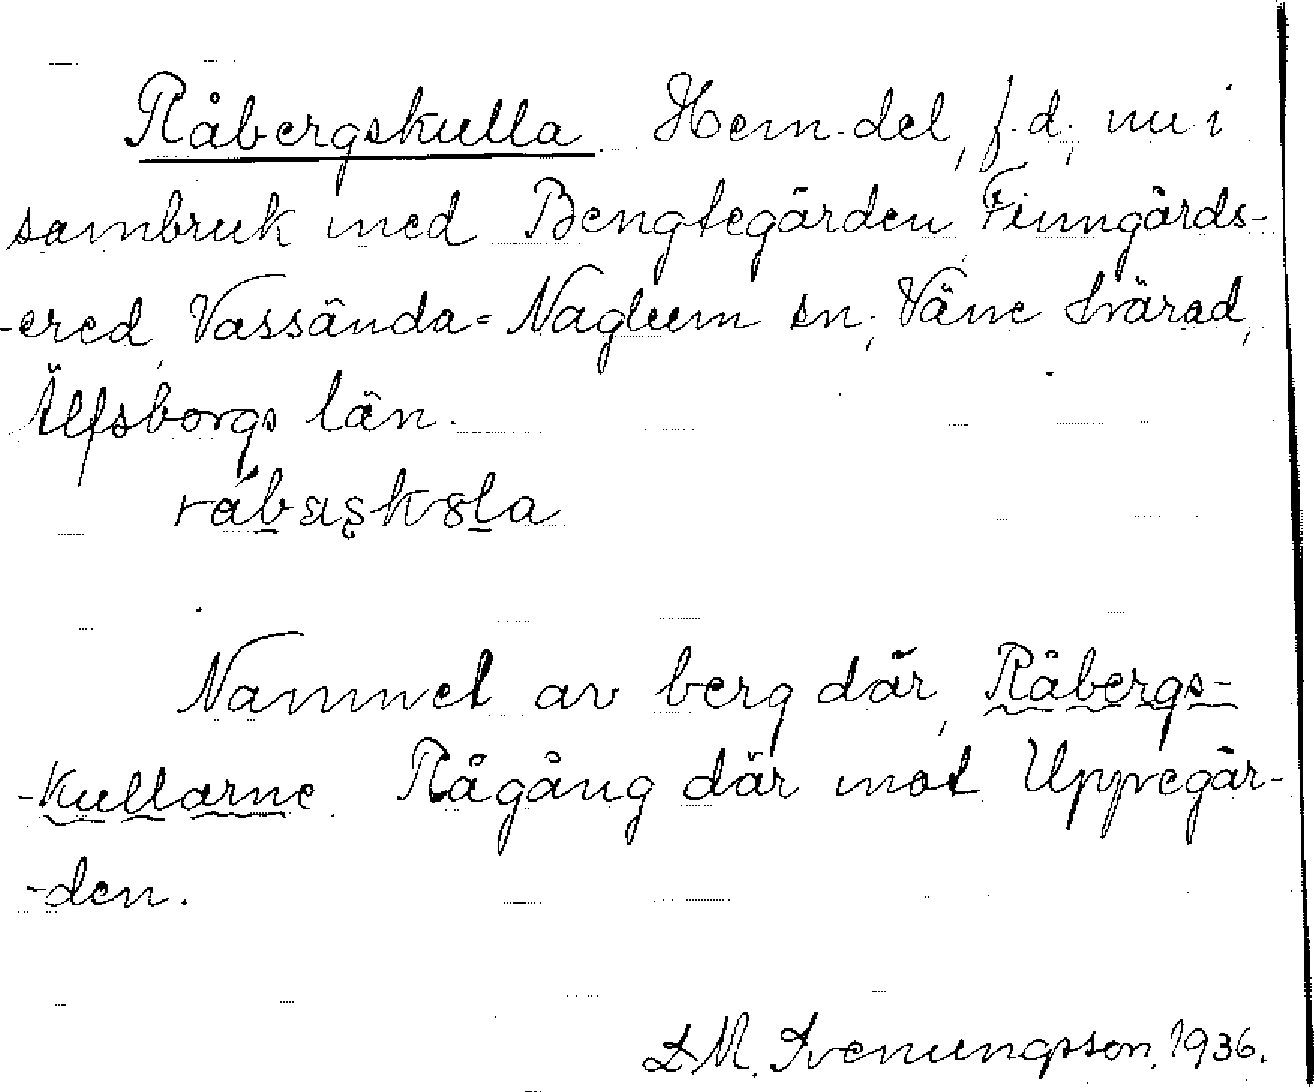 Råbergskulla. Hem.del, f.d., nu i
sambruk med Bengtegården, Finngårds-
-ered, Vassända=Naglum sn., Väne härad,
Älfsborgs län.
Namnet av berg där, Råbergs-
-kullarne. Rågång där mot Uppegår-
-den.
D.M. Svenungsson. 1936.